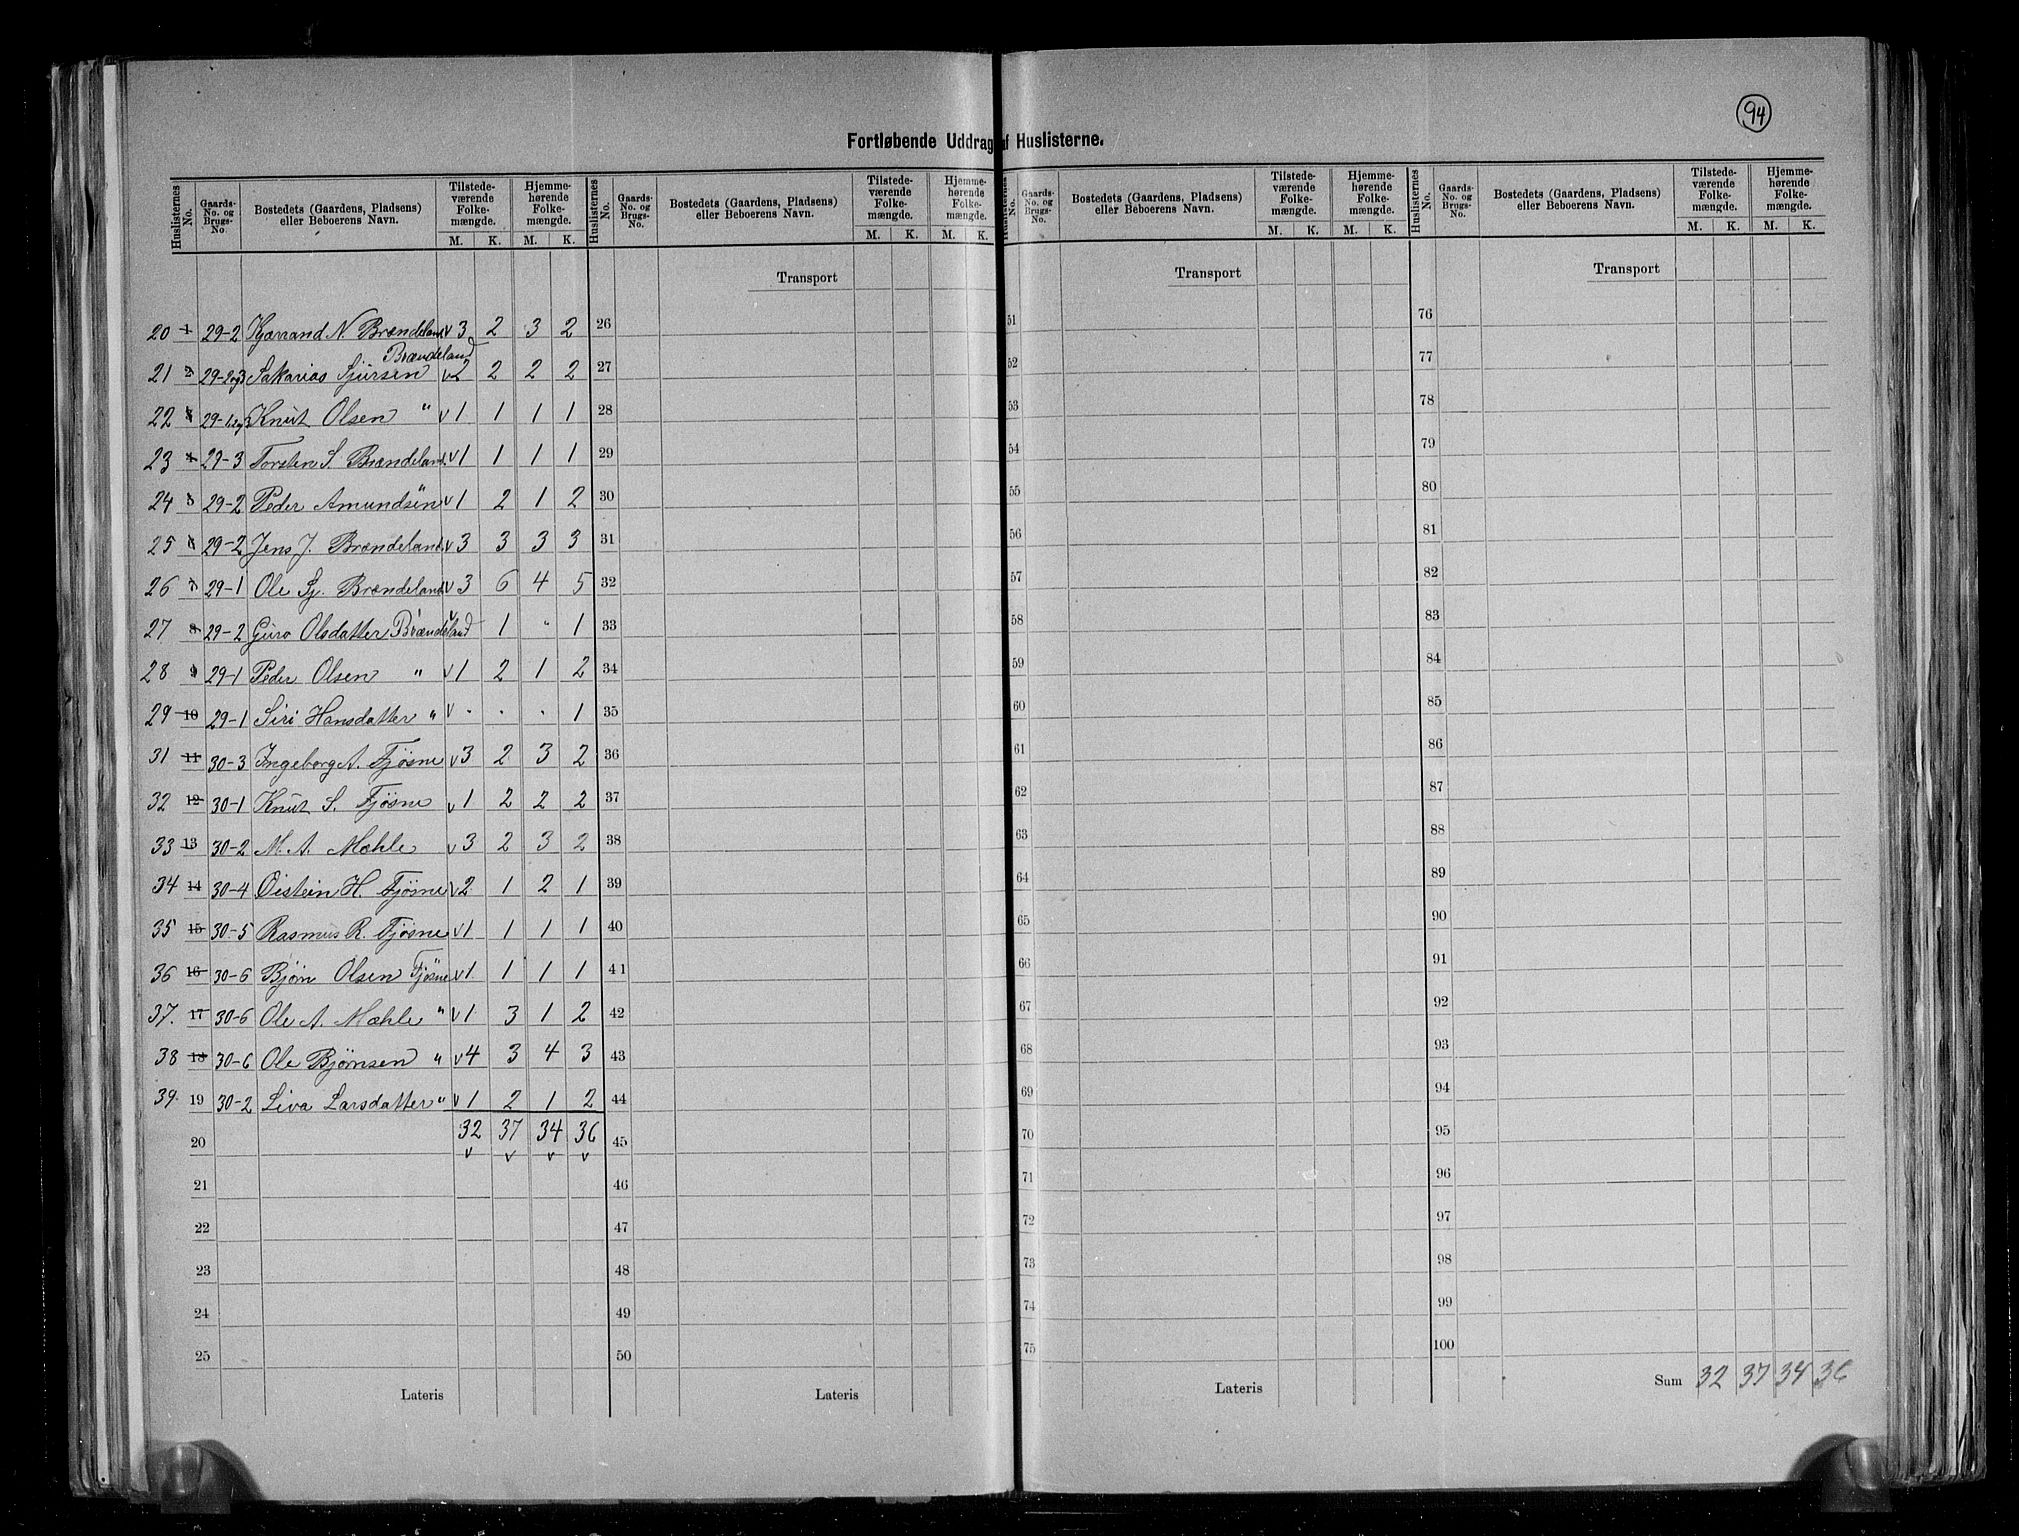 94
Fortløbende Uddrag af Huslisterne.
Huslisternes No. Gaards-No. og Brugs-No. Bostedets (Gaardens, Pladsens) eller Beboerens Navn. Tilstedeværende Folkemængde. M. K. Hjemmehørende Folkemængde. M. K.
Huslisternes No. Gaards-No. og Brugs-No. Bostedets (Gaardens, Pladsens) eller Beboerens Navn. Tilstedeværende Folkemængde. M. K. Hjemmehørende Folkemængde. M. K.
Huslisternes No. Gaards-No. og Brugs-No. Bostedets (Gaardens, Pladsens) eller Beboerens Navn. Tilstedeværende Folkemængde. M. K. Hjemmehørende Folkemængde. M. K.
Huslisternes No. Gaards-No. og Brugs-No. Bostedets (Gaardens, Pladsens) eller Beboerens Navn. Tilstedeværende Folkemængde. M. K. Hjemmehørende Folkemængde. M. K.
Transport Transport Transport
20 1 29-2 N. Brændeland v 3 2 3 2 26 51 76
Brændeland
21 2 29-2og3 Sakarias Sjursen v 2 2 2 2 27 52 77
22 3 29-1og3 Knut Olsen " v 1 1 1 1 28 53 78
23 4 29-3 Torsten S. Brændeland v 1 1 1 1 29 54 79
24 5 29-2 Peder Amundsen " v 1 2 1 2 30 55 80
25 6 29-2 Jens J. Brændeland v 3 3 3 3 31 56 81
26 7 29-1 Ole Sj. Brændeland v 3 6 4 5 32 57 82
27 8 29-2 Guro Olsdatter Brændeland " 1 " 1 33 58 83
28 9 29-1 Peder Olsen " v 1 2 1 2 34 59 84
29 10 29-1 Siri Hansdatter " v . . . 1 35 60 85
31 11 30-3 Ingeborg A. Fjøsne v 3 2 3 2 36 61 86
32 12 30-1 Knut S. Fjøsne v 1 2 2 2 37 62 87
33 13 30-2 M. A. Mæhle v 3 2 3 2 38 63 88
34 14 30-4 Øistein H. Fjøsne v 2 1 2 1 39 64 89
35 15 30-5 Rasmus R. Fjøsne v 1 1 1 1 40 65 90
36 16 30-6 Bjørn Olsen Fjøsne v 1 1 1 1 41 66 91
37. 17 30-6 Ole A. Mæhle " v 1 3 1 2 42 67 92
38 18 30-6 Ole Bjørnsen " v 4 3 4 3 43 68 93
39. 19 30-2 Siva Larsdatter " v 1 2 1 2 44 69 94
20 32 37 34 36 45 70 95
v v v v
21 46 71 96
22 47 72 97
23 48 73 98
24 49 74 99
25 50 75 100
Lateris Lateris Lateris Sum 32 37 34 36